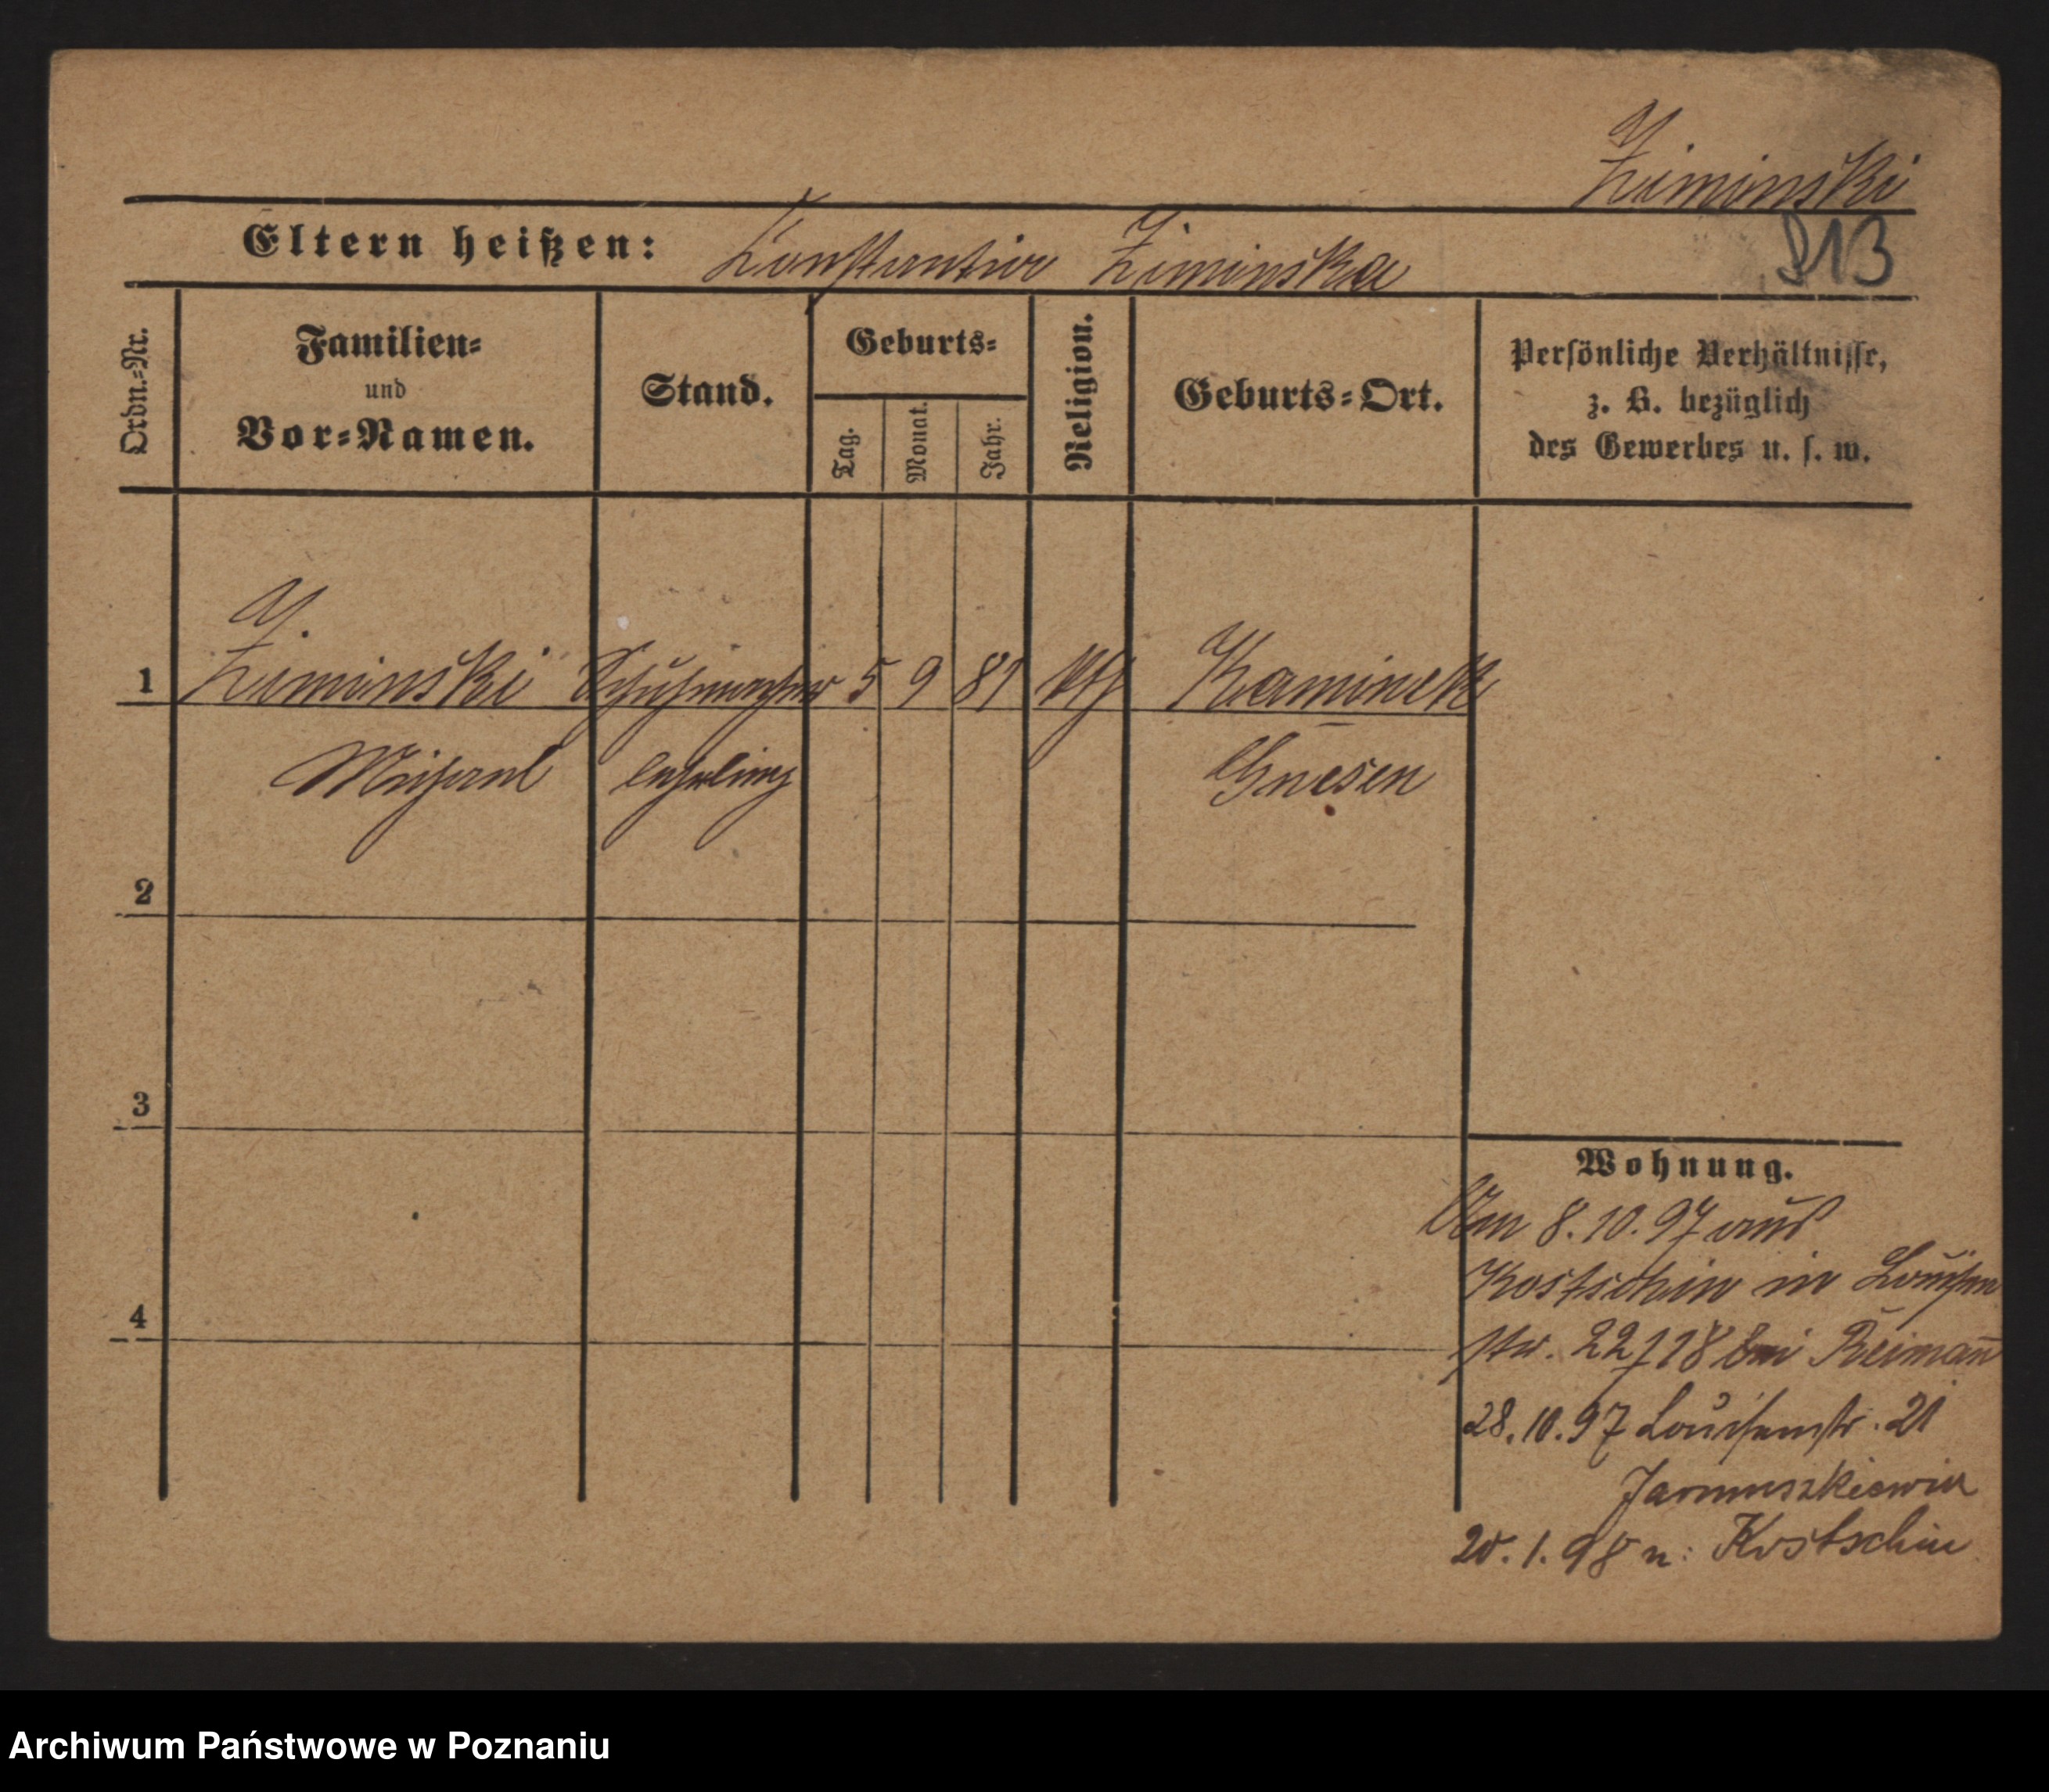 Ziminski
Eltern heißen: Konstantin Ziminska
213
Ordn.=Nr.
Familien=
und
Vor=Namen.
Stand.
Geburts=
Tag.
Monat.
Jahr.
Religion.
Geburts=Ort.
Persönliche Verhältnisse,
z. B. bezüglich
des Gewerbes u. s. w.
1 Ziminski Schuhmacher 5 9 81 kth Kaminek
Michael lehrling Gnesen
2
3
4
Wohnung.
Am 8.10.97 aus
Kostschin in Louisen
str. 22/ bei Reiman̄
28.10.97 Louisenstr. 21
20.1.98 n: Kostschin
Archiwum Państwowe w Poznaniu